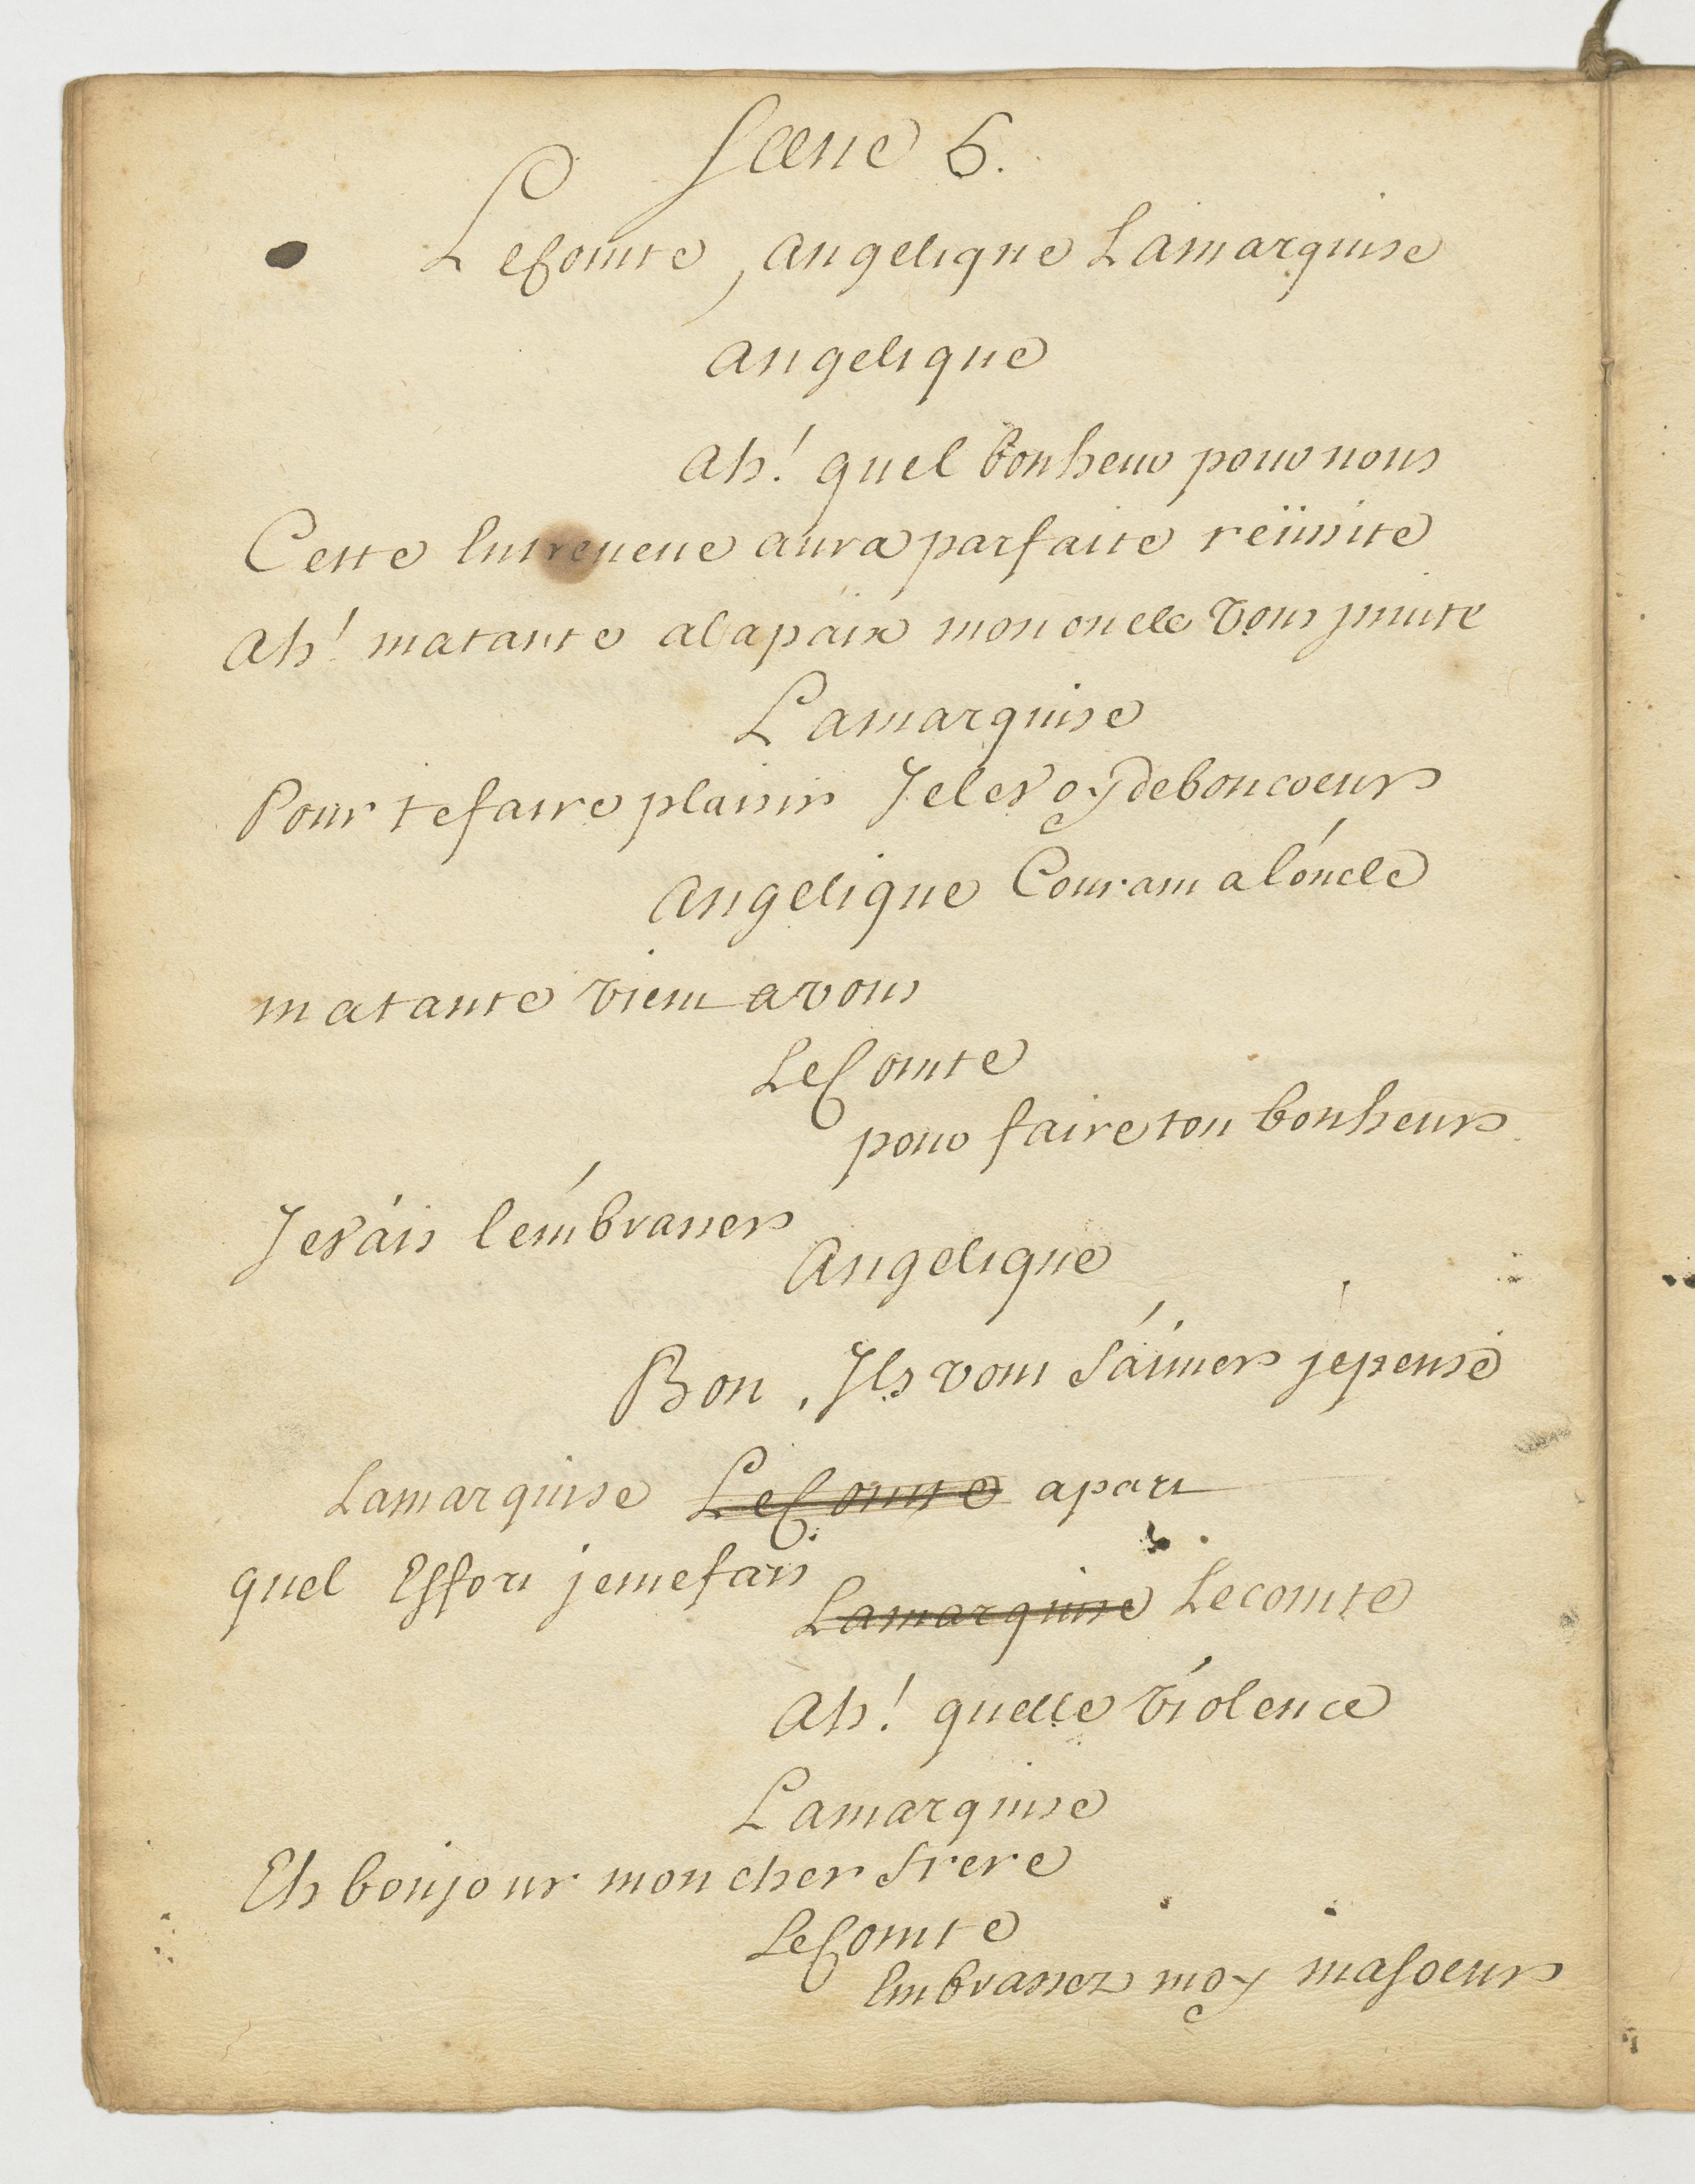 Scene 6.
LeComte, angelique Lamarquise
angelique
ah! quel bonheur pour nous
Cette Entreveue aura parfaite reüssite
ah! matante alapaix mon oncle vous jnvite
Lamarquise
Pour tefaire plaisir Jelevoy deboncoeur
angelique Courant aloncle
matante vient avous
LeComte
pour faire ton bonheur
Jevais lémbrasser
Angelique
Bon, Ils vont s'áimer jepense
Lamarquise LeComte apart
quel Effort jemefais
Lamarquise Lecomte
Ah! quelle violence
Lamarquise
Eh bonjour mon cher frere
LeComte
Embrassez moy masoeur